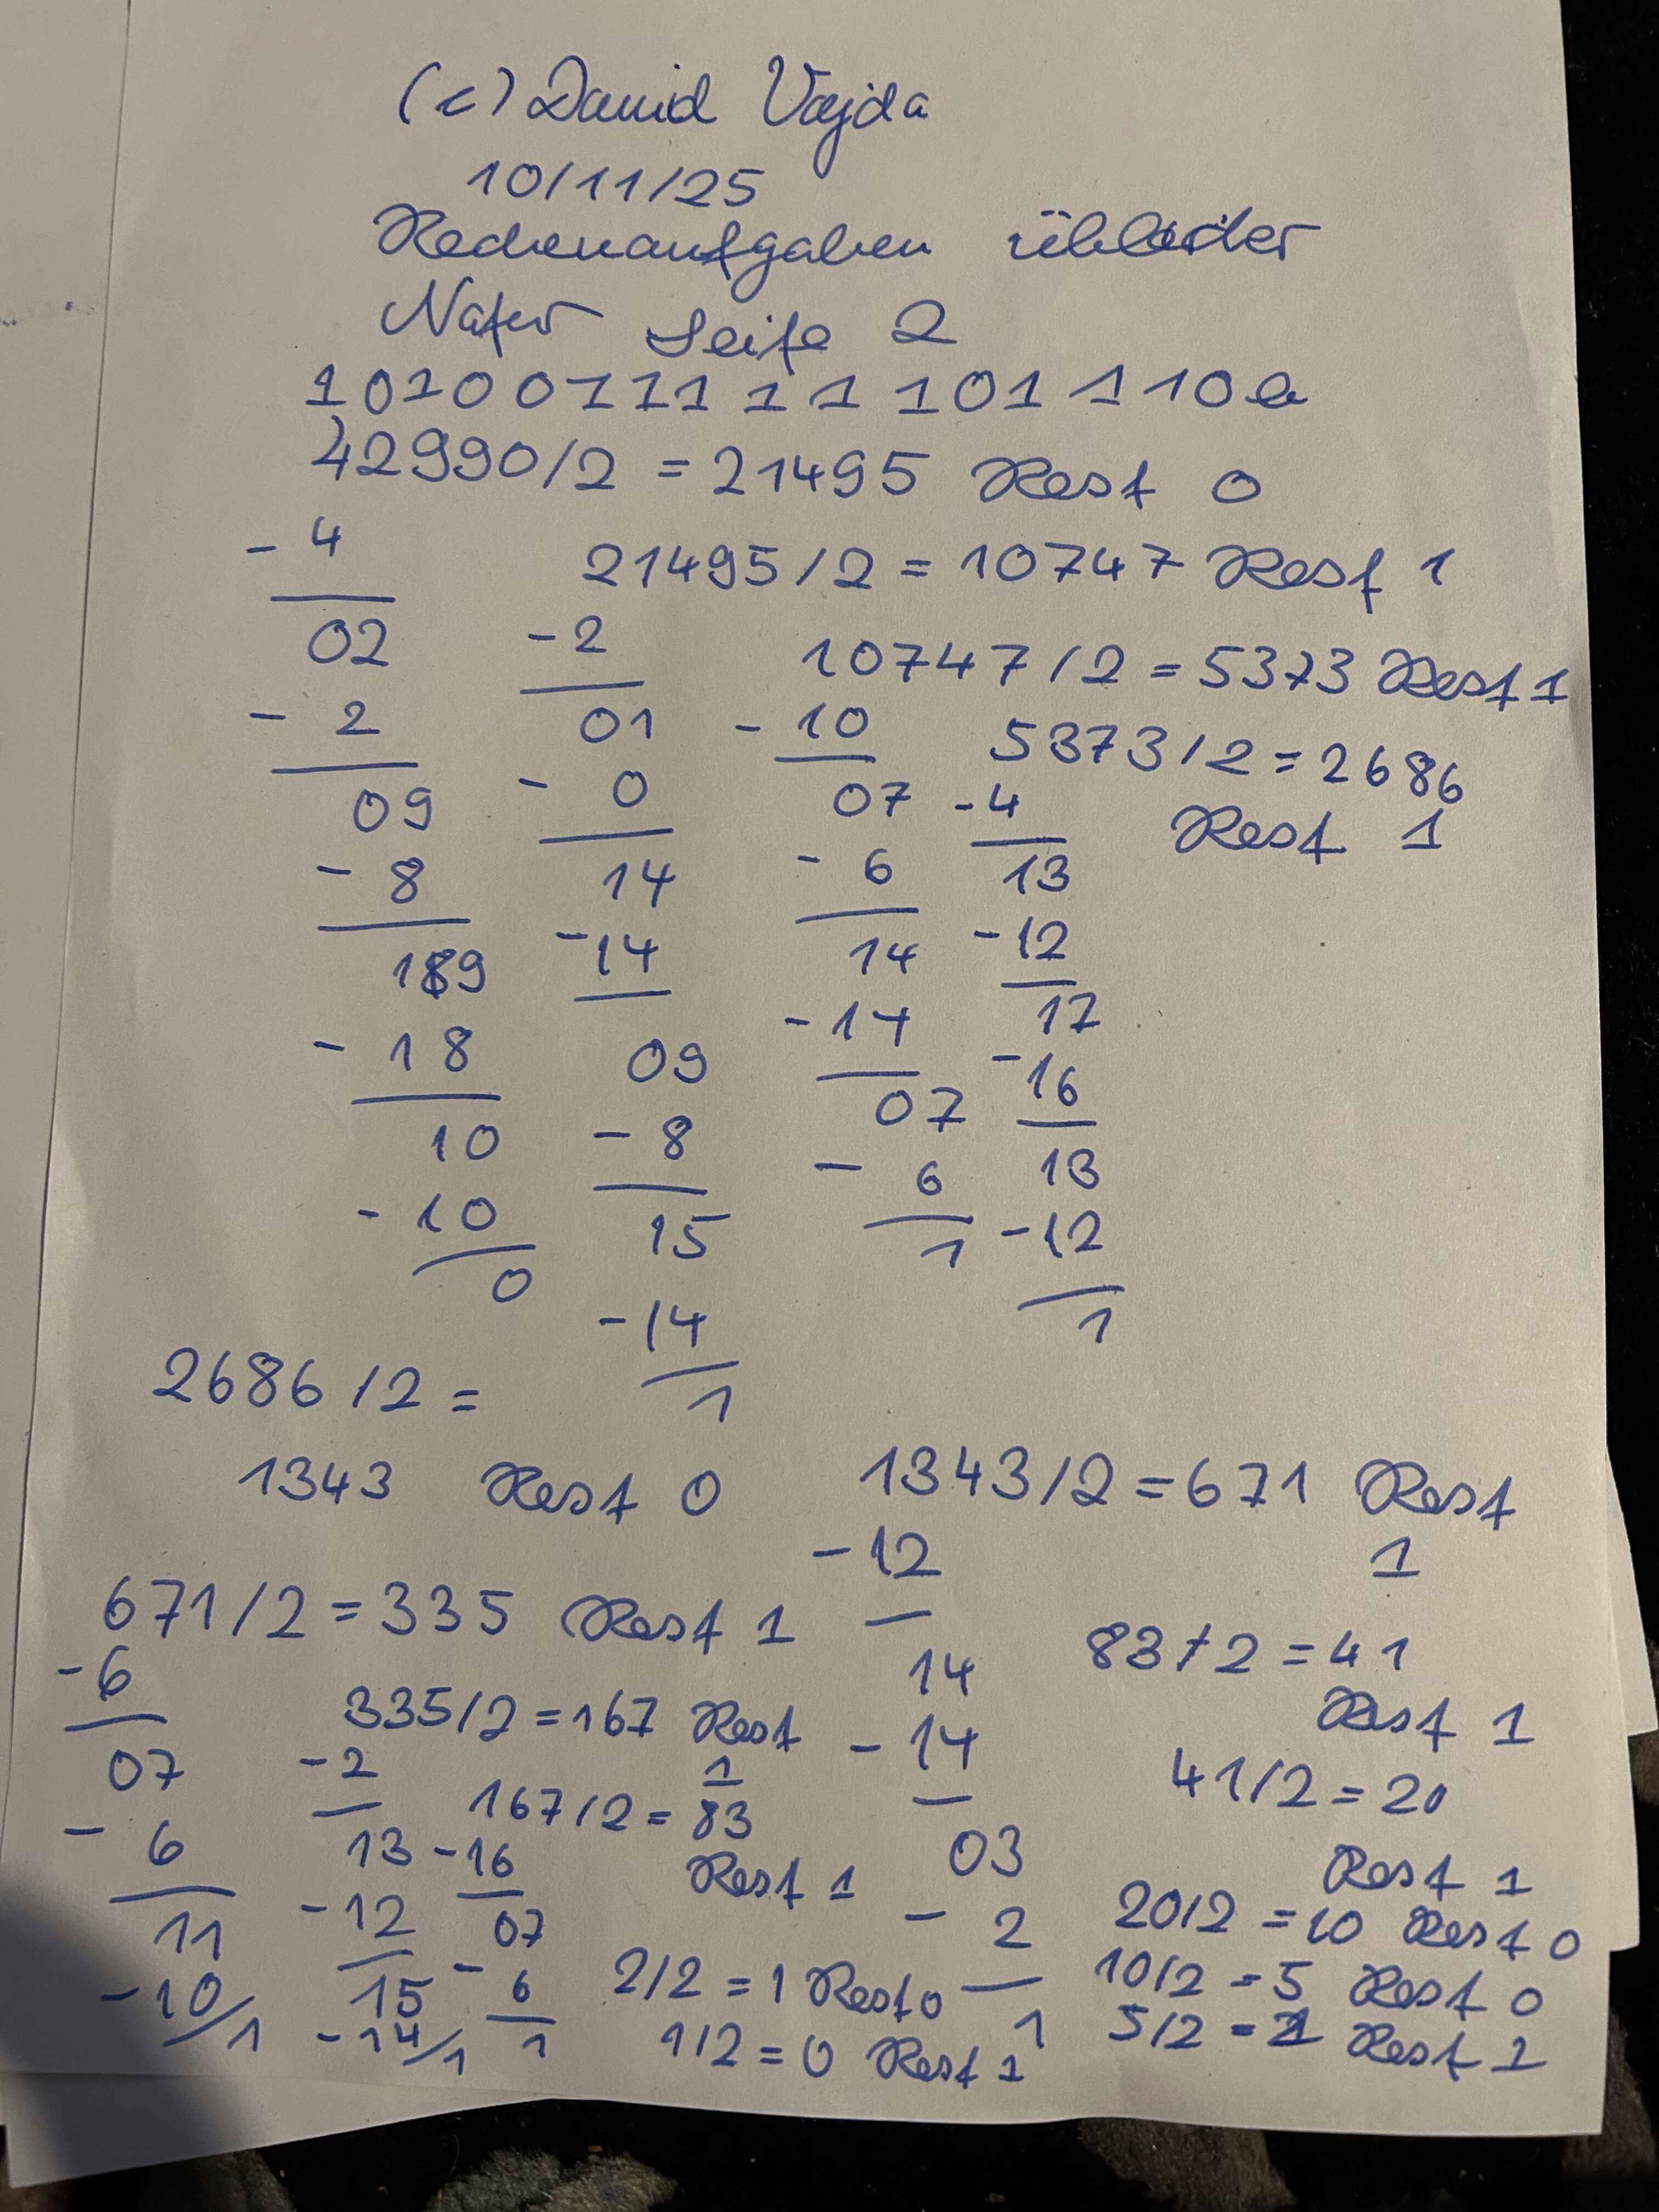 (c) David Vajda
10/11/25
Rechenaufgaben übloicher
Natur Seite 2
1010011111101110b
42990/2 = 21495 Rest 0
- 4
02
- 2
09
- 8
189
- 18
10
- 10
0
21495/2 = 10747 Rest 1
- 2
01
- 0
14
- 14
09
- 8
15
- 14
1
10747/2 = 5373 Rest 1
- 10
07
- 6
14
- 14
07
- 6
1
5373/2 = 2686
Rest 1
- 4
13
- 12
17
- 16
13
- 12
1
2686/2 =
1343 Rest 0
1343/2 = 671 Rest
1
- 12
14
- 14
03
- 2
1
671/2 = 335 Rest 1
- 6
07
- 6
11
- 10
1
335/2 = 167 Rest
1
- 2
13
- 12
15
- 14
1
167/2 = 83
Rest 1
- 16
07
- 6
1
83/2 = 41
Rest 1
41/2 = 20
Rest 1
20/2 = 10 Rest 0
10/2 = 5 Rest 0
5/2 = 2 Rest 1
2/2 = 1 Rest 0
1/2 = 0 Rest 1